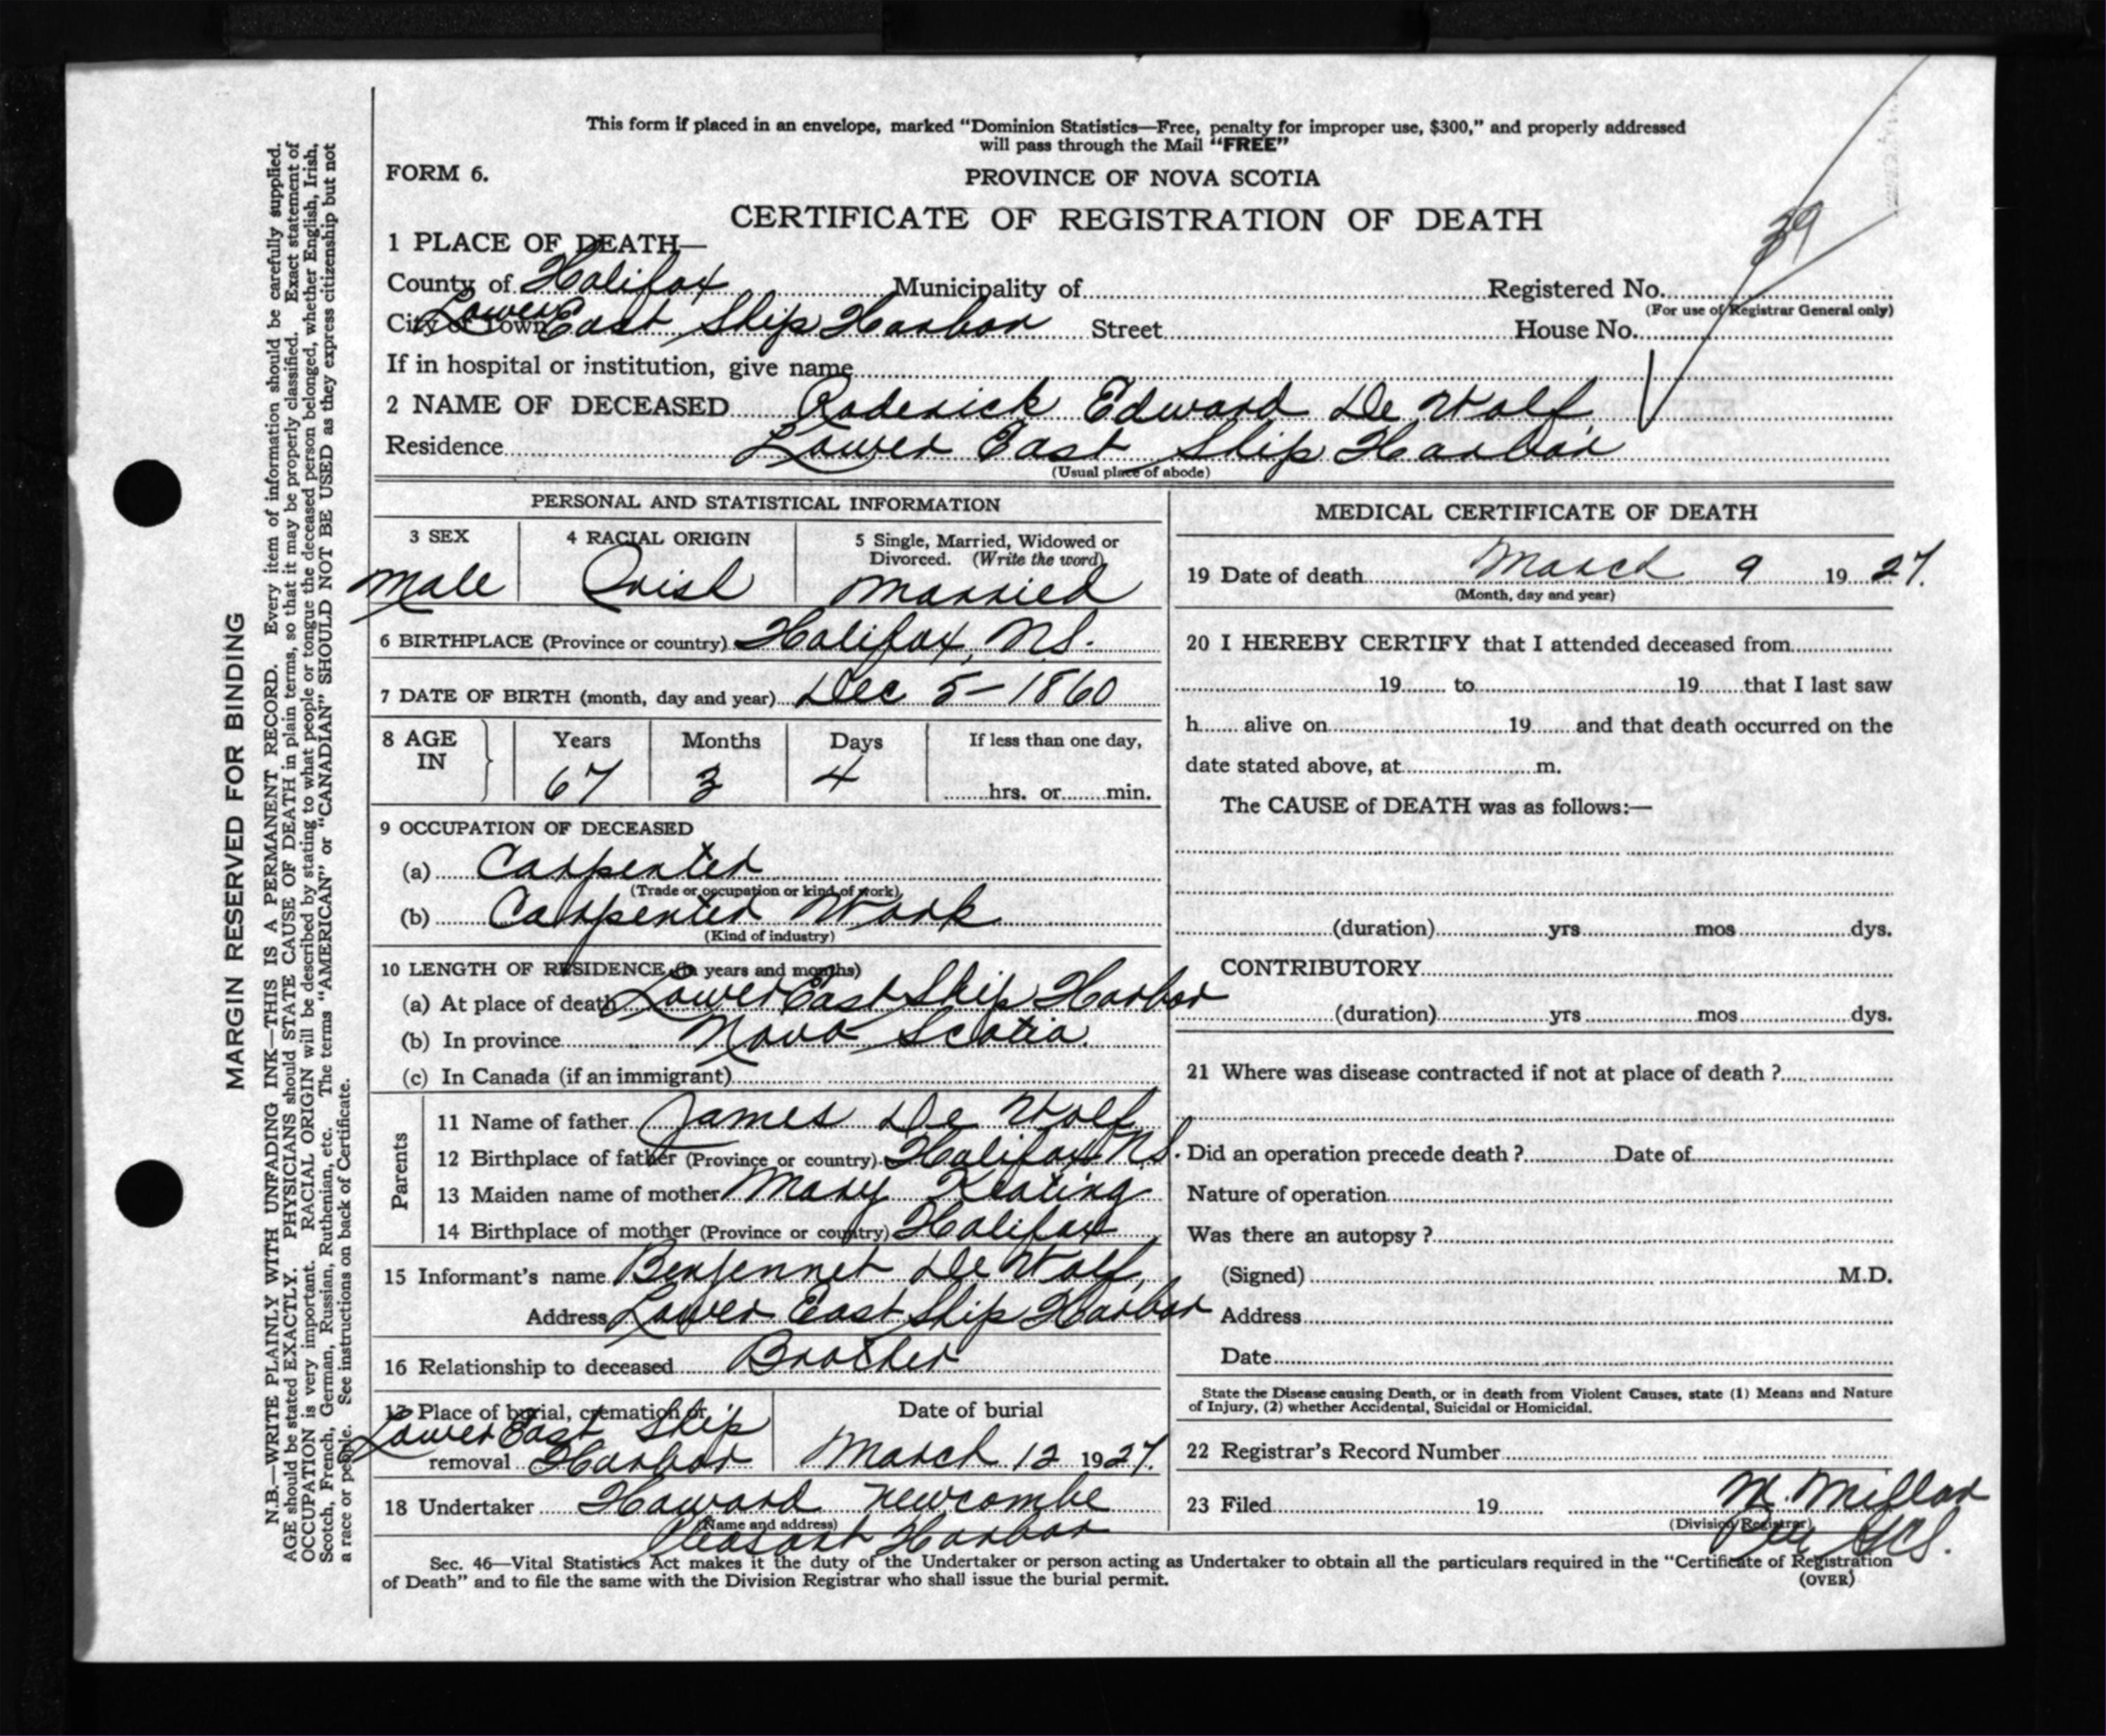 This form if placed in an envelope, marked “Dominion Statistics—Free, penalty for improper use, $300,” and properly addressed
will pass through the Mail “FREE”
FORM 6.
PROVINCE OF NOVA SCOTIA
CERTIFICATE OF REGISTRATION OF DEATH
39
1 PLACE OF DEATH—
County of Halifax Municipality of Registered No.
(For use of Registrar General only)
City or Town Lower East Ship Harbor Street House No.
If in hospital or institution, give name
2 NAME OF DECEASED Roderick Edward De Wolf
Residence Lower East Ship Harbor
(Usual place of abode)
PERSONAL AND STATISTICAL INFORMATION
3 SEX
Male
4 RACIAL ORIGIN
Irish
5 Single, Married, Widowed or
Divorced. (Write the word)
Married
6 BIRTHPLACE (Province or country) Halifax, N.S.
7 DATE OF BIRTH (month, day and year) Dec 5 – 1860
8 AGE IN
Years Months Days If less than one day,
67 3 4 hrs. or min.
9 OCCUPATION OF DECEASED
(a) Carpenter
(Trade or occupation or kind of work)
(b) Carpenter Work
(Kind of industry)
10 LENGTH OF RESIDENCE (in years and months)
(a) At place of death Lower East Ship Harbor
(b) In province Nova Scotia
(c) In Canada (if an immigrant)
Parents
11 Name of father James De Wolf
12 Birthplace of father (Province or country) Halifax N.S.
13 Maiden name of mother Mary Keating
14 Birthplace of mother (Province or country) Halifax
15 Informant's name De Wolf
Address Lower East Ship Harbor
16 Relationship to deceased Brother
17 Place of burial, cremation or
Lower East Ship
removal Harbor
Date of burial
March 12 1927.
18 Undertaker Howard Newcombe
(Name and address)
Pleasant Harbor
MEDICAL CERTIFICATE OF DEATH
19 Date of death March 9 1927.
(Month, day and year)
20 I HEREBY CERTIFY that I attended deceased from
19 to 19 that I last saw
h alive on 19 and that death occurred on the
date stated above, at m.
The CAUSE of DEATH was as follows:—
(duration) yrs mos dys.
CONTRIBUTORY
(duration) yrs mos dys.
21 Where was disease contracted if not at place of death ?
Did an operation precede death ? Date of
Nature of operation
Was there an autopsy ?
(Signed) M.D.
Address
Date
State the Disease causing Death, or in death from Violent Causes, state (1) Means and Nature
of Injury, (2) whether Accidental, Suicidal or Homicidal.
22 Registrar's Record Number
23 Filed 19 M. Millar
(Division Registrar)
Per
Sec. 46—Vital Statistics Act makes it the duty of the Undertaker or person acting as Undertaker to obtain all the particulars required in the “Certificate of Registration
of Death” and to file the same with the Division Registrar who shall issue the burial permit.
(OVER)
MARGIN RESERVED FOR BINDING
N.B.—WRITE PLAINLY WITH UNFADING INK—THIS IS A PERMANENT RECORD. Every item of information should be carefully supplied.
AGE should be stated EXACTLY. PHYSICIANS should STATE CAUSE OF DEATH in plain terms, so that it may be properly classified. Exact statement of
OCCUPATION is very important. RACIAL ORIGIN will be described by stating to what people or tongue the deceased person belonged, whether English, Irish,
Scotch, French, German, Russian, Ruthenian, etc. The terms “AMERICAN” or “CANADIAN” SHOULD NOT BE USED as they express citizenship but not
a race or people. See instructions on back of Certificate.